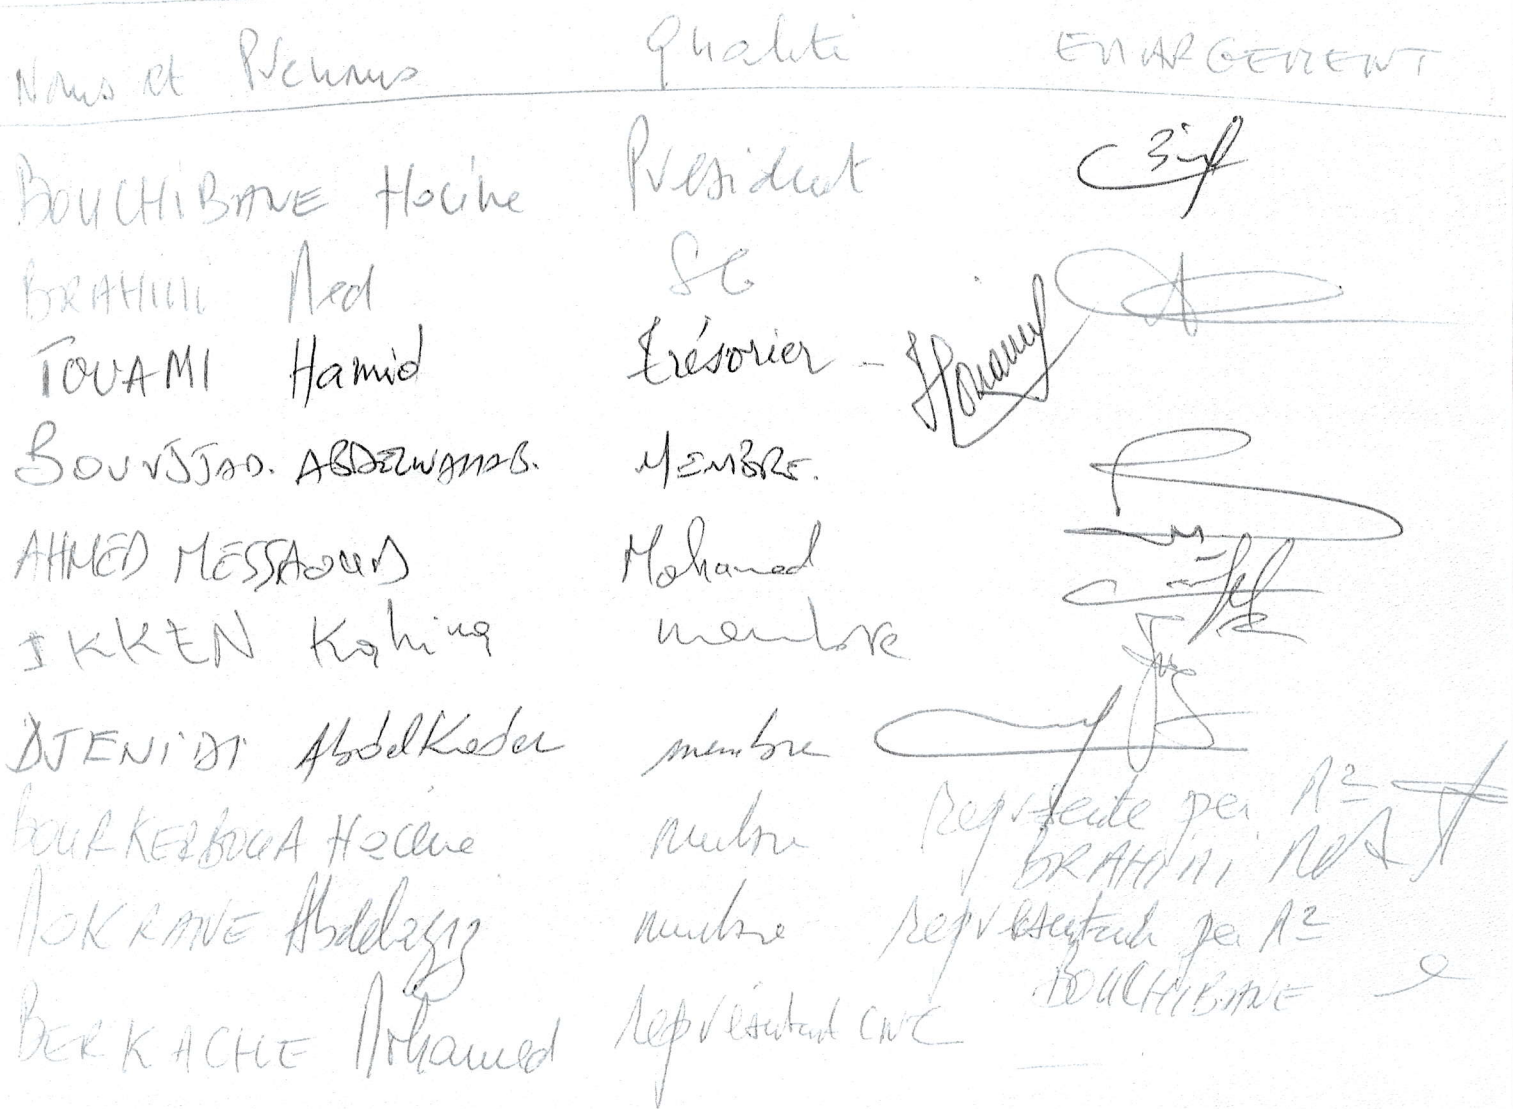 Noms et Prénoms Qualité EMARGEMENT
BOUCHIBANE Hocine Président
BRAHIMI Med SG
TOUAMI Hamid trésorier -
ABDELWAHAB. MEMBRE.
AHMED MESSAOUD Mohamed
IKKEN Kahina membre
DJENIDI Abdelkader membre
BOURKERBOUA Hocine membre représenté par Mr
BRAHIMI Med
MOKRANE Abdelaziz membre représenté par Mr
BOUCHIBANE
BERKACHE Mohamed représentant CNC